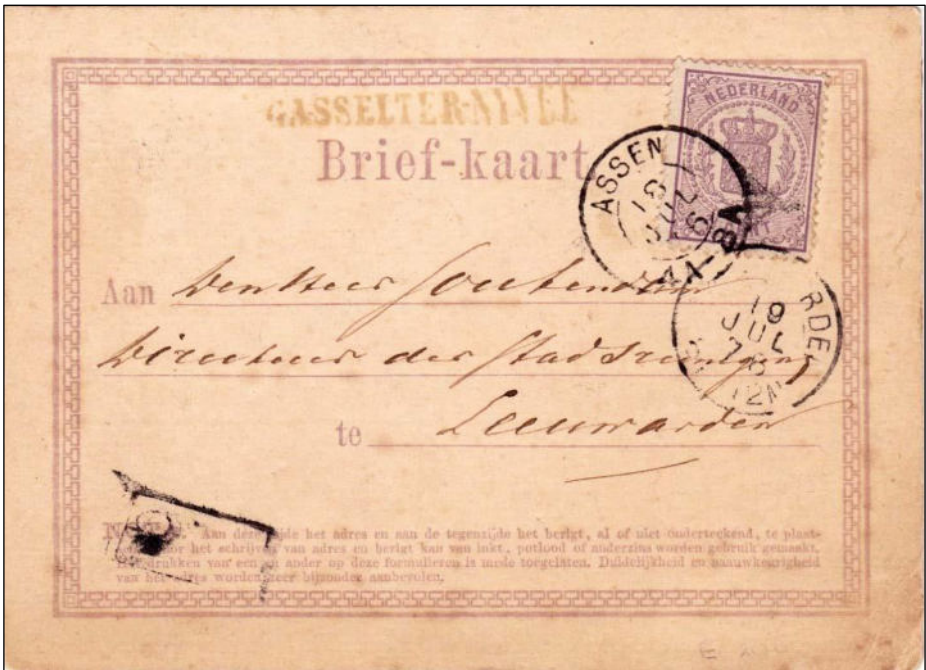 GASSELTER-NYVEE
Brief-kaart
NEDERLAND
ASSEN
18
JUL
76
Aan den Heer
Directeur der Stadsreiniging
te Leeuwarden
19
JUL
76
12N
Aan deze zijde het adres en aan de tegenzijde het berigt, al of niet onderteekend, te plaat-
voor het schrijven van adres en berigt kan van inkt, potlood of anderzins worden gebruik gemaakt.
drukken van een en ander op deze formulieren is mede toegelaten. Duidelijkheid en naauwkeurigheid
van het adres worden zeer bijzonder aanbevolen.